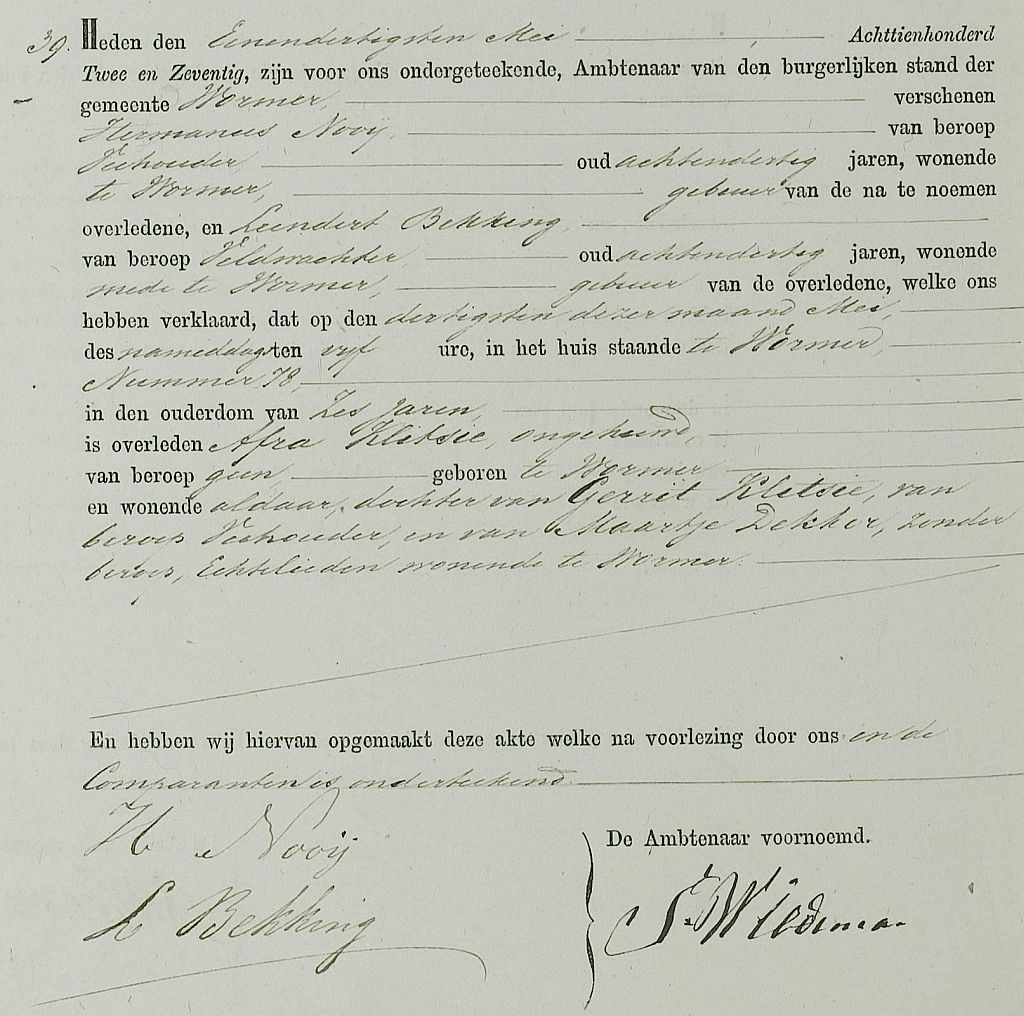 39. Heden den Einendertigsten Mei Achttienhonderd
Twee en Zeventig, zijn voor ons ondergeteekende, Ambtenaar van den burgerlijken stand der
gemeente Wormer, verschenen
Hermanus Nooij, van beroep
Veehouder, oud achtendertig jaren, wonende
te Wormer, gebuur van de na te noemen
overledene, en Leendert Bekking,
van beroep Veldwachter, oud achtendertig jaren, wonende
mede te Wormer, gebuur van de overledene, welke ons
hebben verklaard, dat op den dertigsten dezer maand Mei,
des nameddags ten vijf ure, in het huis staande te Wormer,
Nummer 78,
in den ouderdom van Zes jaren,
is overleden Afra Kletsie, ongehuwd,
van beroep geen geboren te Wormer
en wonende aldaar, dochter van Gerrit Kletsie, van
beroep Veehouder, en van Maartje Dekker, zonder
beroep, Echtelieden wonende te Wormer.
En hebben wij hiervan opgemaakt deze akte welke na voorlezing door ons en de
Comparanten is onderteekend.
H Nooij
De Ambtenaar voornoemd.
L Bekking